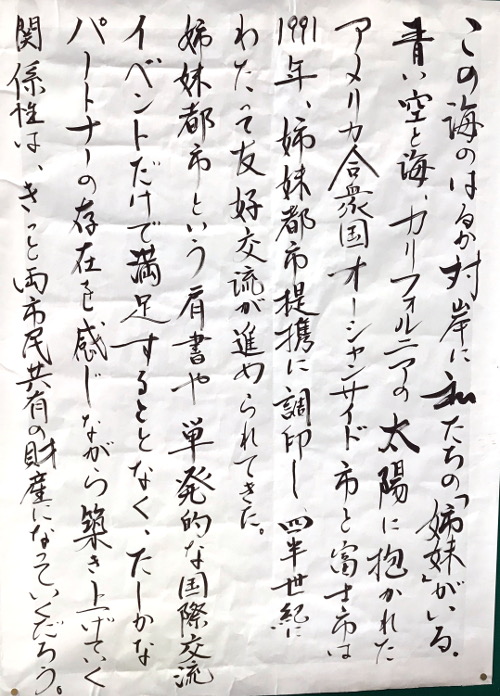 この海のはるか対岸に私たちの「姉妹」がいる。
青い空と海、カリフォルニアの太陽に抱かれた
アメリカ合衆国オーシャンサイド市と富士市は
1991年、姉妹都市提携に調印し、四半世紀に
わたって友好交流が進められてきた。
姉妹都市という肩書や単発的な国際交流
イベントだけで満足することなく、たしかな
パートナーの存在を感じながら築き上げていく
関係性は、きっと両市民共有の財産になっていくだろう。